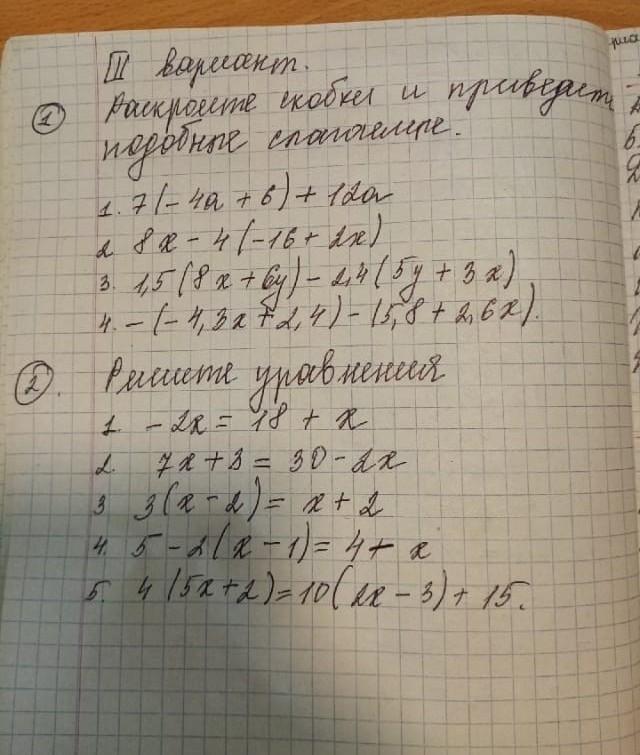 III вариант.
① Раскройте скобки и приведите
подобные слагаемые.
1. 7(-4a + 6) + 12a
2. 8x - 4(-16 + 2x)
3. 1,5(8x + 6y) - 2,4(5y + 3x)
4. -(-4,3x + 2,4) - (5,8 + 2,6x).
②. Решите уравнения
1. -2x = 18 + x
2. 7x + 3 = 30 - 2x
3 3(x - 2) = x + 2
4. 5 - 2(x - 1) = 4 + x
5. 4(5x + 2) = 10(2x - 3) + 15.